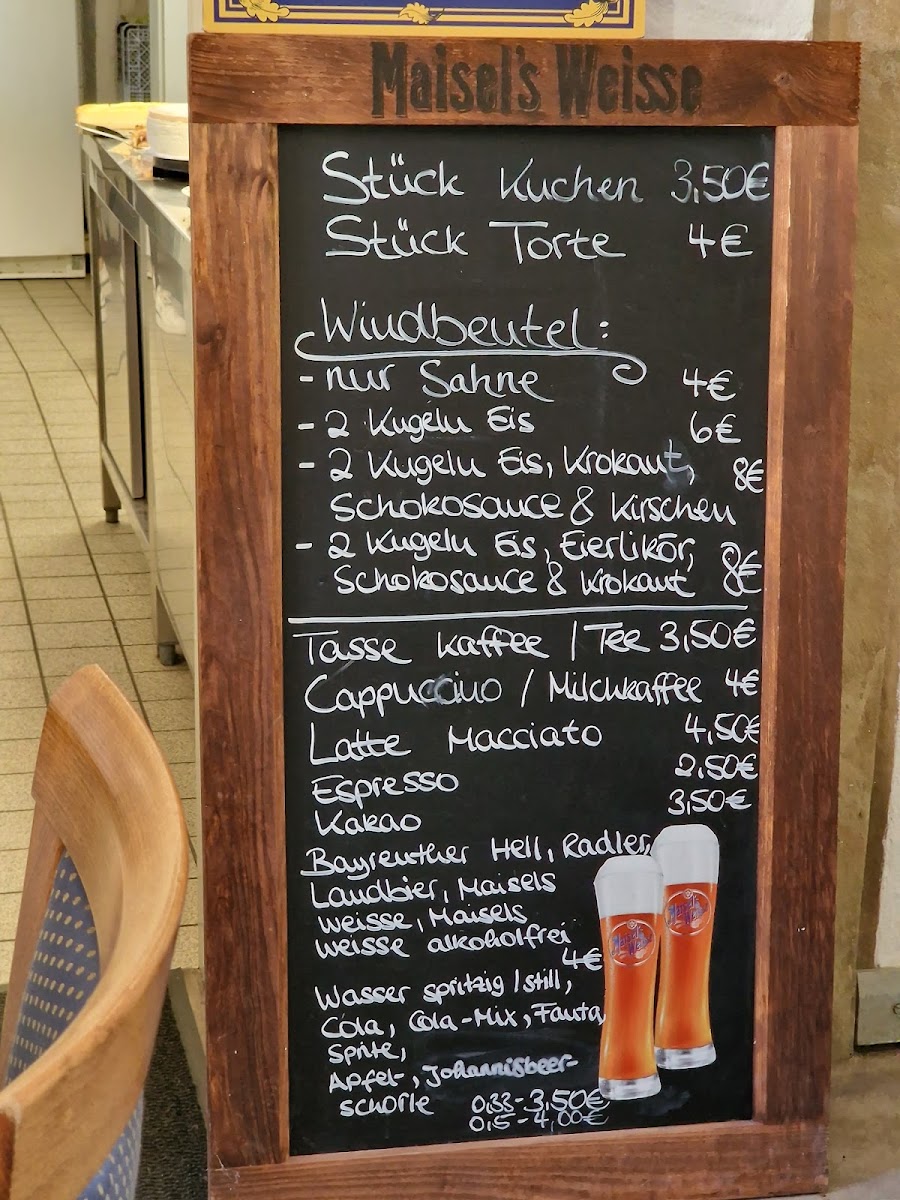 Maisel's Weisse
Stück Kuchen 3,50€
Stück Torte 4€
Windbeutel:
- nur Sahne 4€
- 2 Kugeln Eis 6€
- 2 Kugeln Eis, Krokant, 8€
Schokosauce & Kirschen
- 2 Kugeln Eis, Eierlikör,
Schokosauce & Krokant 8€
Tasse Kaffee / Tee 3,50€
Cappuccino / Milchkaffee 4€
Latte Macciato 4,50€
Espresso 2,50€
Kakao 3,50€
Bayreuther Hell, Radler,
Landbier, Maisels
Weisse, Maisels
Weisse alkoholfrei
4€
Wasser spritzig / still,
Cola, Cola-Mix, Fanta,
Sprite,
Apfel-, Johannisbeer-
schorle 0,33- 3,50€
0,5- 4,00€